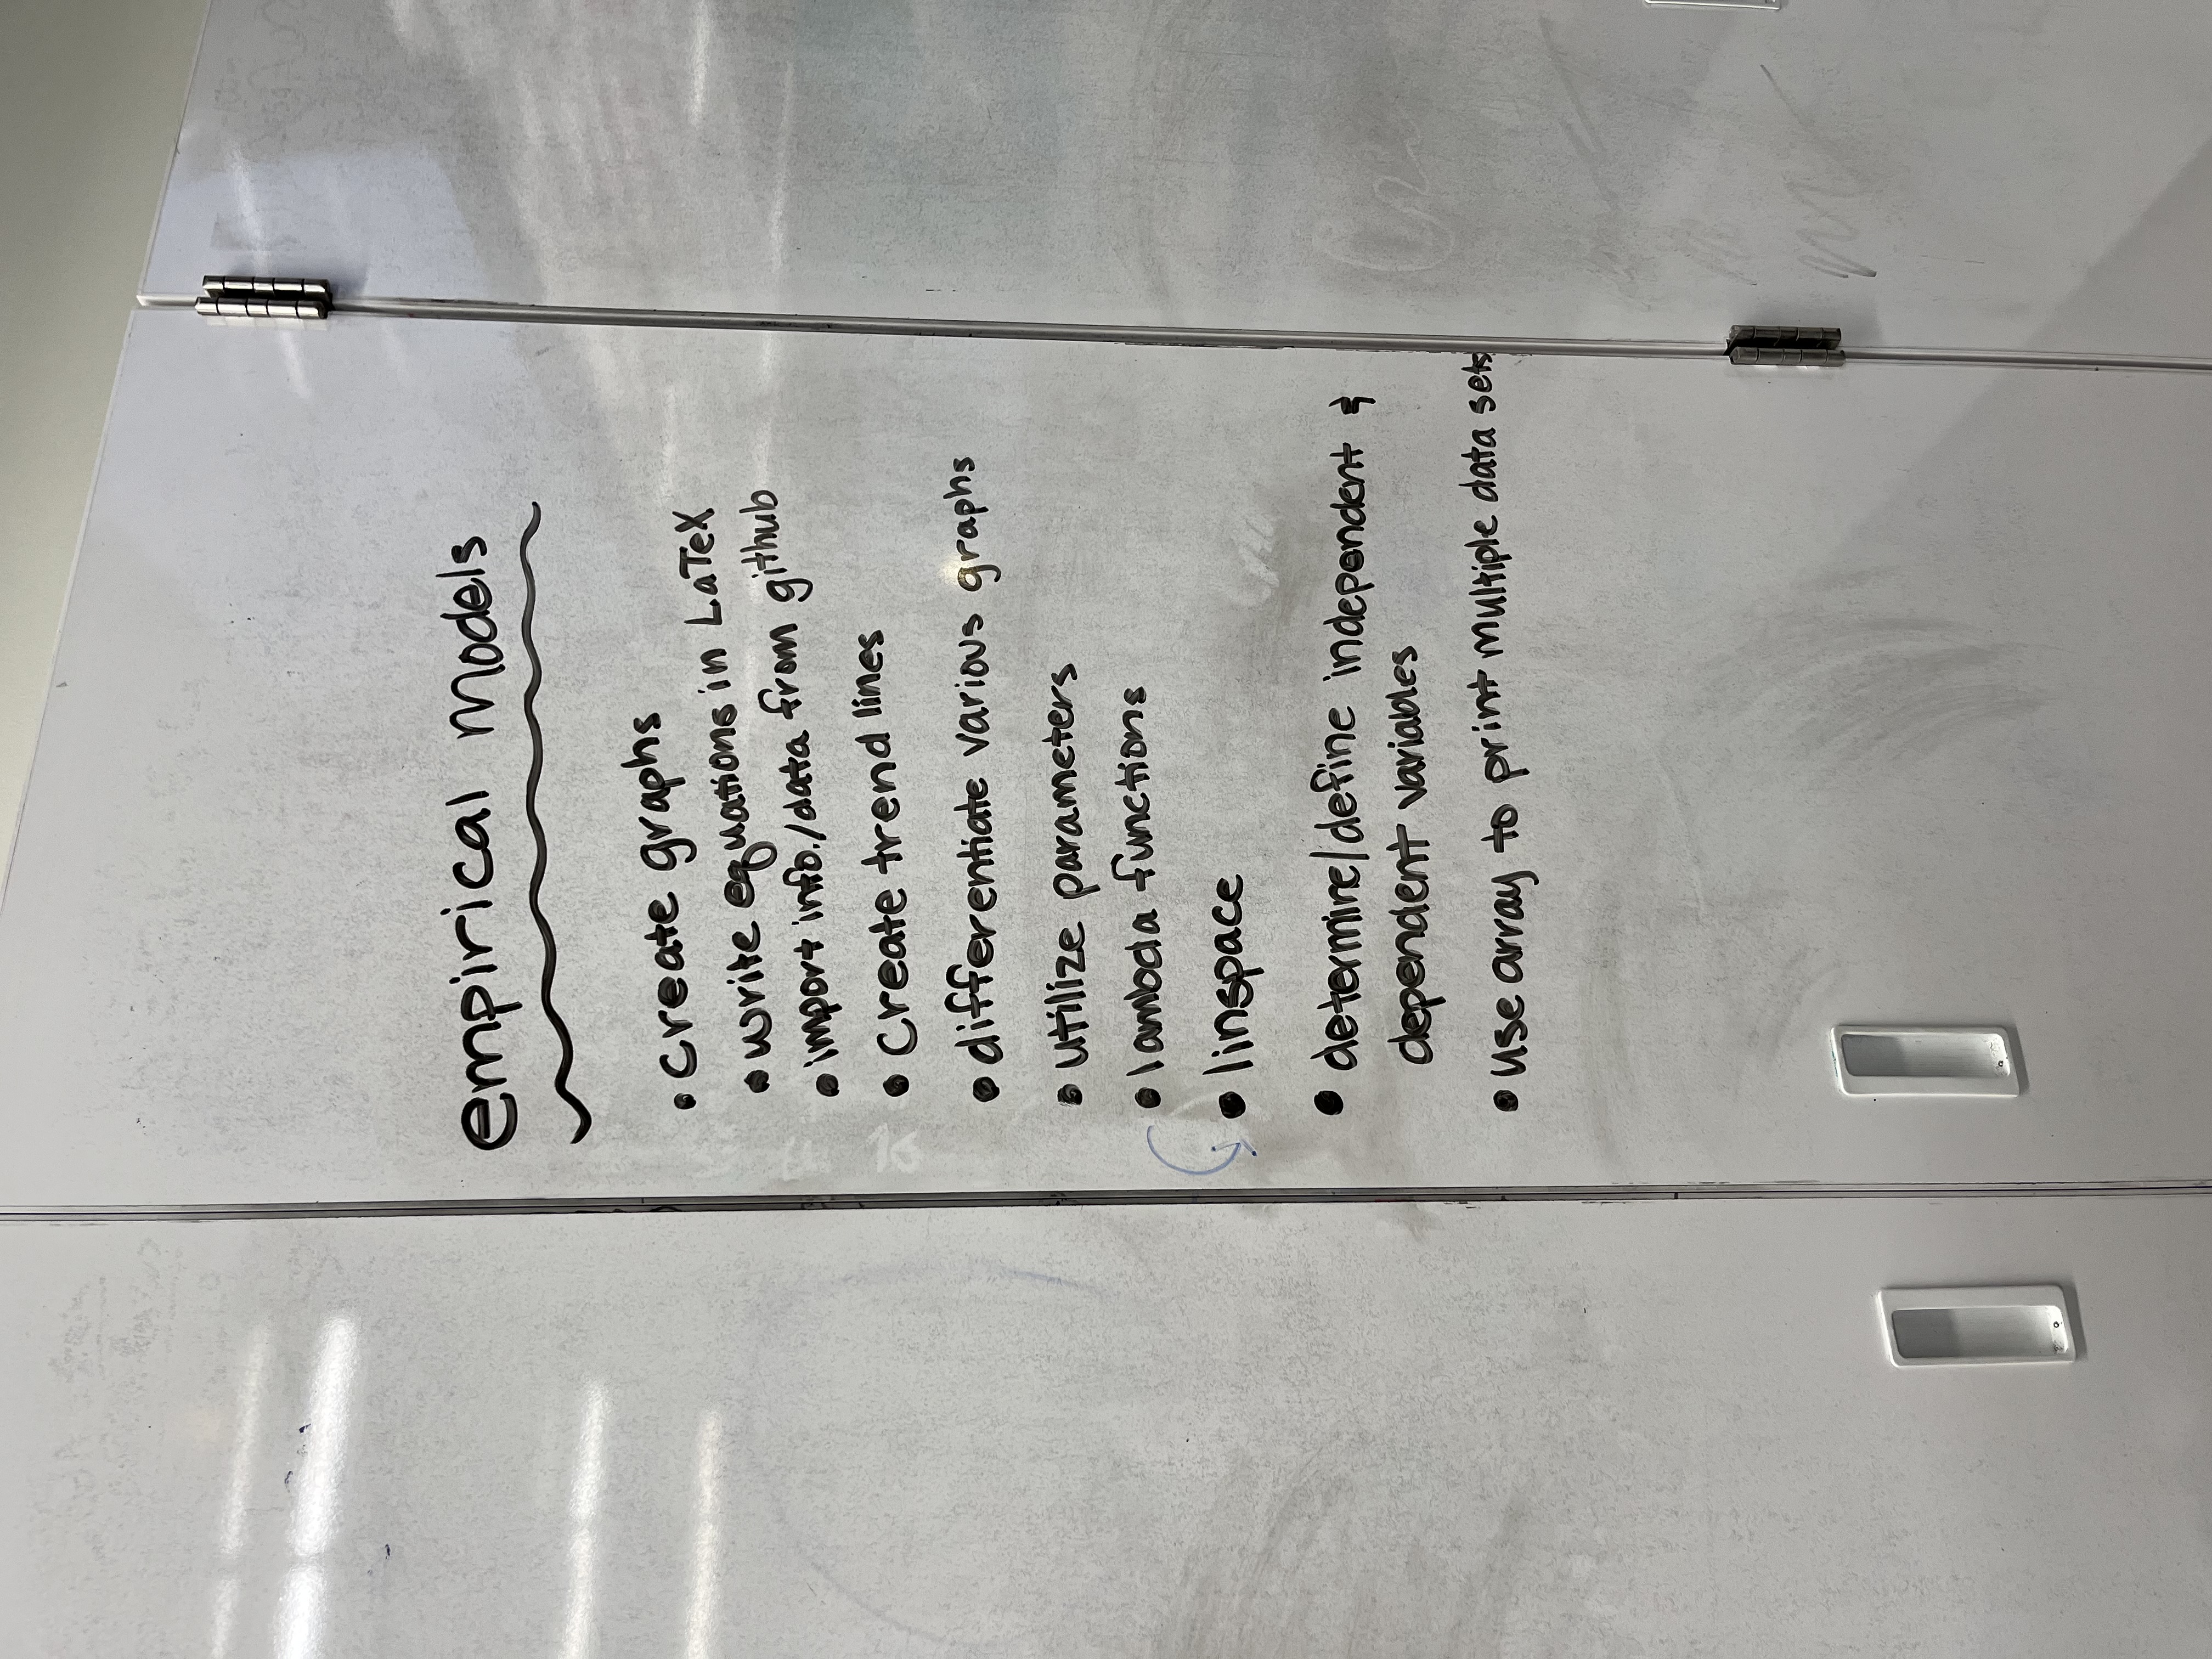 empirical models
• Create graphs
• write equations in LaTeX
• import info./data from github
• Create trend lines
• differentiate various graphs
• utilize parameters
• lambda functions
• linspace
• determine/define independent &
dependent variables
• use array to print multiple data sets